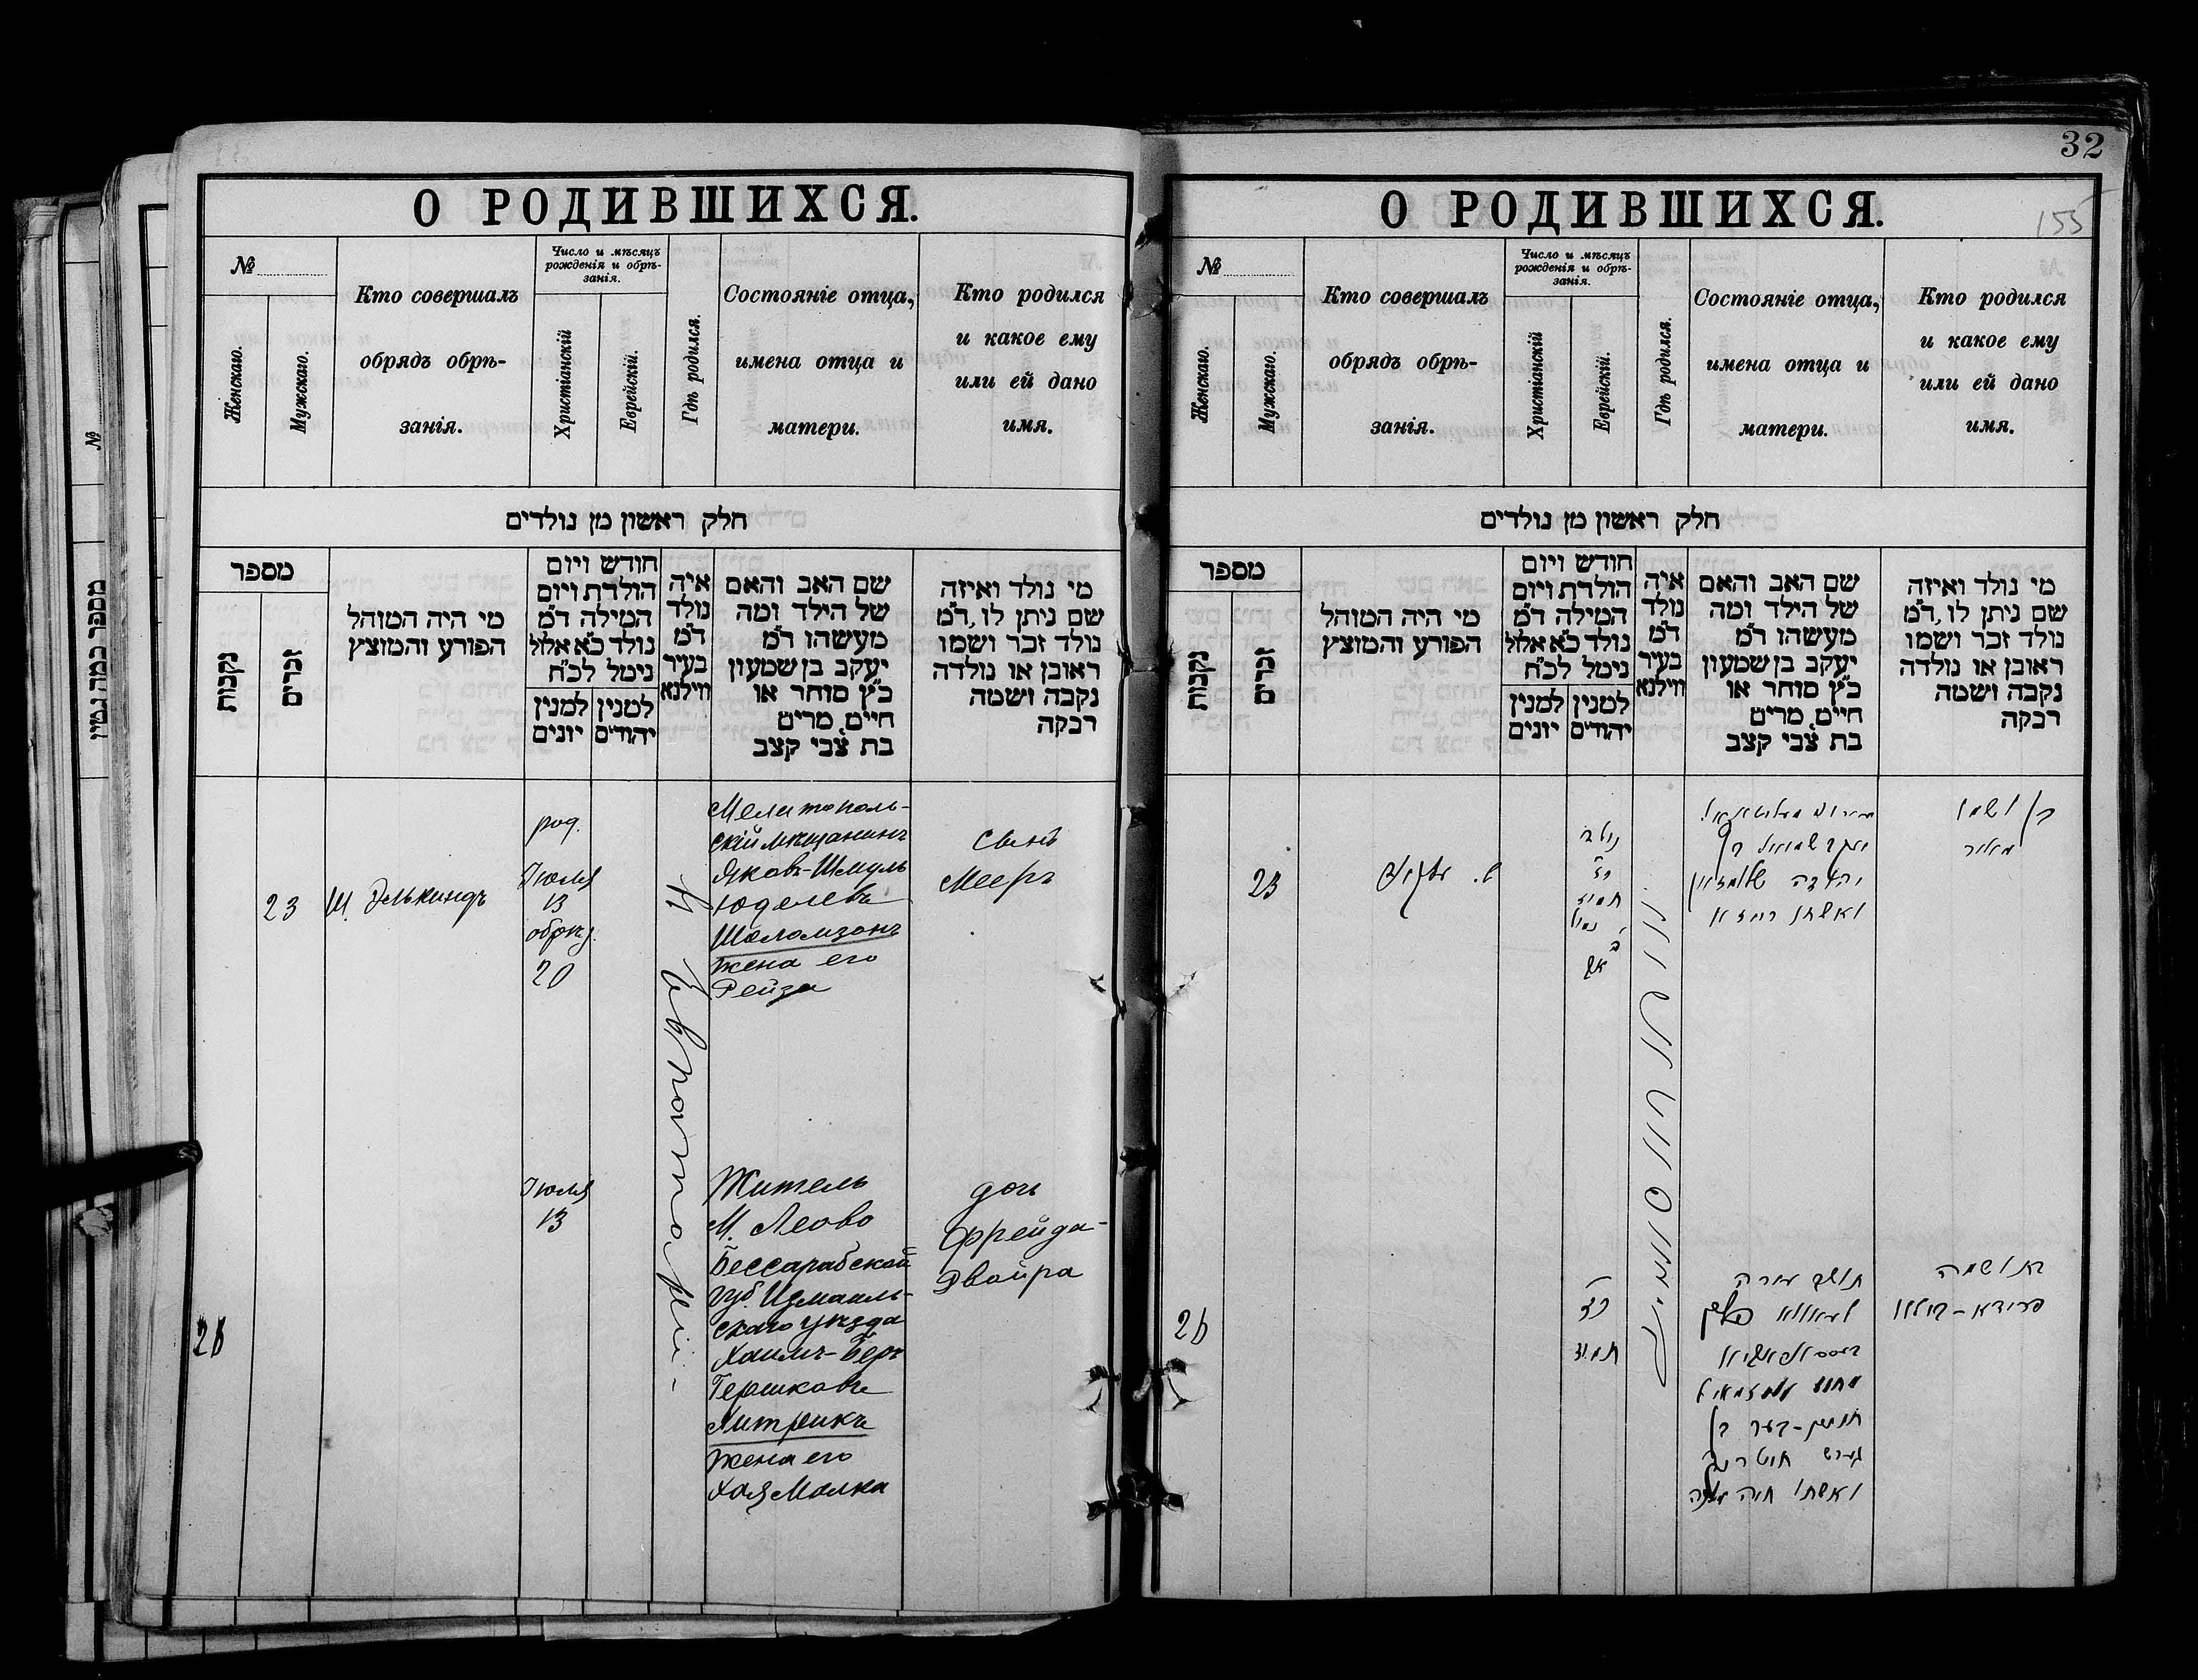 32
155
О РОДИВШИХСЯ.
№
Женскаго.
Мужскаго.
Кто совершалъ
обрядъ обрѣ-
занія.
Число и мѣсяцъ
рожденія и обрѣ-
занія.
Христіанскій
Еврейскій.
Гдѣ родился.
Состояніе отца,
имена отца и
матери.
Кто родился
и какое ему
или ей дано
имя.
חלק ראשון מן נולדים
מספר
נקבות
זכרים
מי היה המוהל
הפורע והמוצץ
חודש ויום
הולדת ויום
המילה ד"מ
נולד כ"א אלול
נימל לכ"ח
למנין
יונים
למנין
יהודים
איה
נולד
ד"מ
בעיר
ווילנא
שם האב והאם
של הילד ומה
מעשהו ד"מ
יעקב בן שמעון
כ"ץ סוחר או
חיים, מרים
בת צבי קצב
מי נולד ואיזה
שם ניתן לו, ד"מ
נולד זכר ושמו
ראובן או נולדה
נקבה ושמה
רבקה
23
Ш. Элькиндъ
род.
Іюля
13
обрѣз.
20
г. Евпаторіи
Мелитополь-
скій мѣщанинъ
Яковъ-Шмуль
Юделевъ
Шоломзонъ
жена его
Рейза
Сынъ
Мееръ
2б
Іюля
13
Житель
М. Леово
Бессарабской
губ. Измаиль-
скаго уѣзда
Хаимъ-Беръ
Гершковъ
Хитрикъ
жена его
Хая Малка
дочь
Фрейда-
Двойра
О РОДИВШИХСЯ.
№
Женскаго.
Мужскаго.
Кто совершалъ
обрядъ обрѣ-
занія.
Число и мѣсяцъ
рожденія и обрѣ-
занія.
Христіанскій
Еврейскій.
Гдѣ родился.
Состояніе отца,
имена отца и
матери.
Кто родился
и какое ему
или ей дано
имя.
חלק ראשון מן נולדים
מספר
נקבות
זכרים
מי היה המוהל
הפורע והמוצץ
חודש ויום
הולדת ויום
המילה ד"מ
נולד כ"א אלול
נימל לכ"ח
למנין
יונים
למנין
יהודים
איה
נולד
ד"מ
בעיר
ווילנא
שם האב והאם
של הילד ומה
מעשהו ד"מ
יעקב בן שמעון
כ"ץ סוחר או
חיים, מרים
בת צבי קצב
מי נולד ואיזה
שם ניתן לו, ד"מ
נולד זכר ושמו
ראובן או נולדה
נקבה ושמה
רבקה
23
תמוז
נמול
יעקב שמואל בן
יהודה שלומזאן
ואשתו רייזא
בן ושמו
מאיר
2б
כד
תמוז
תושב
חיים-בער בן
הערש חיטריק
ואשתו חיה מלכה
בת ושמה
פריידא-